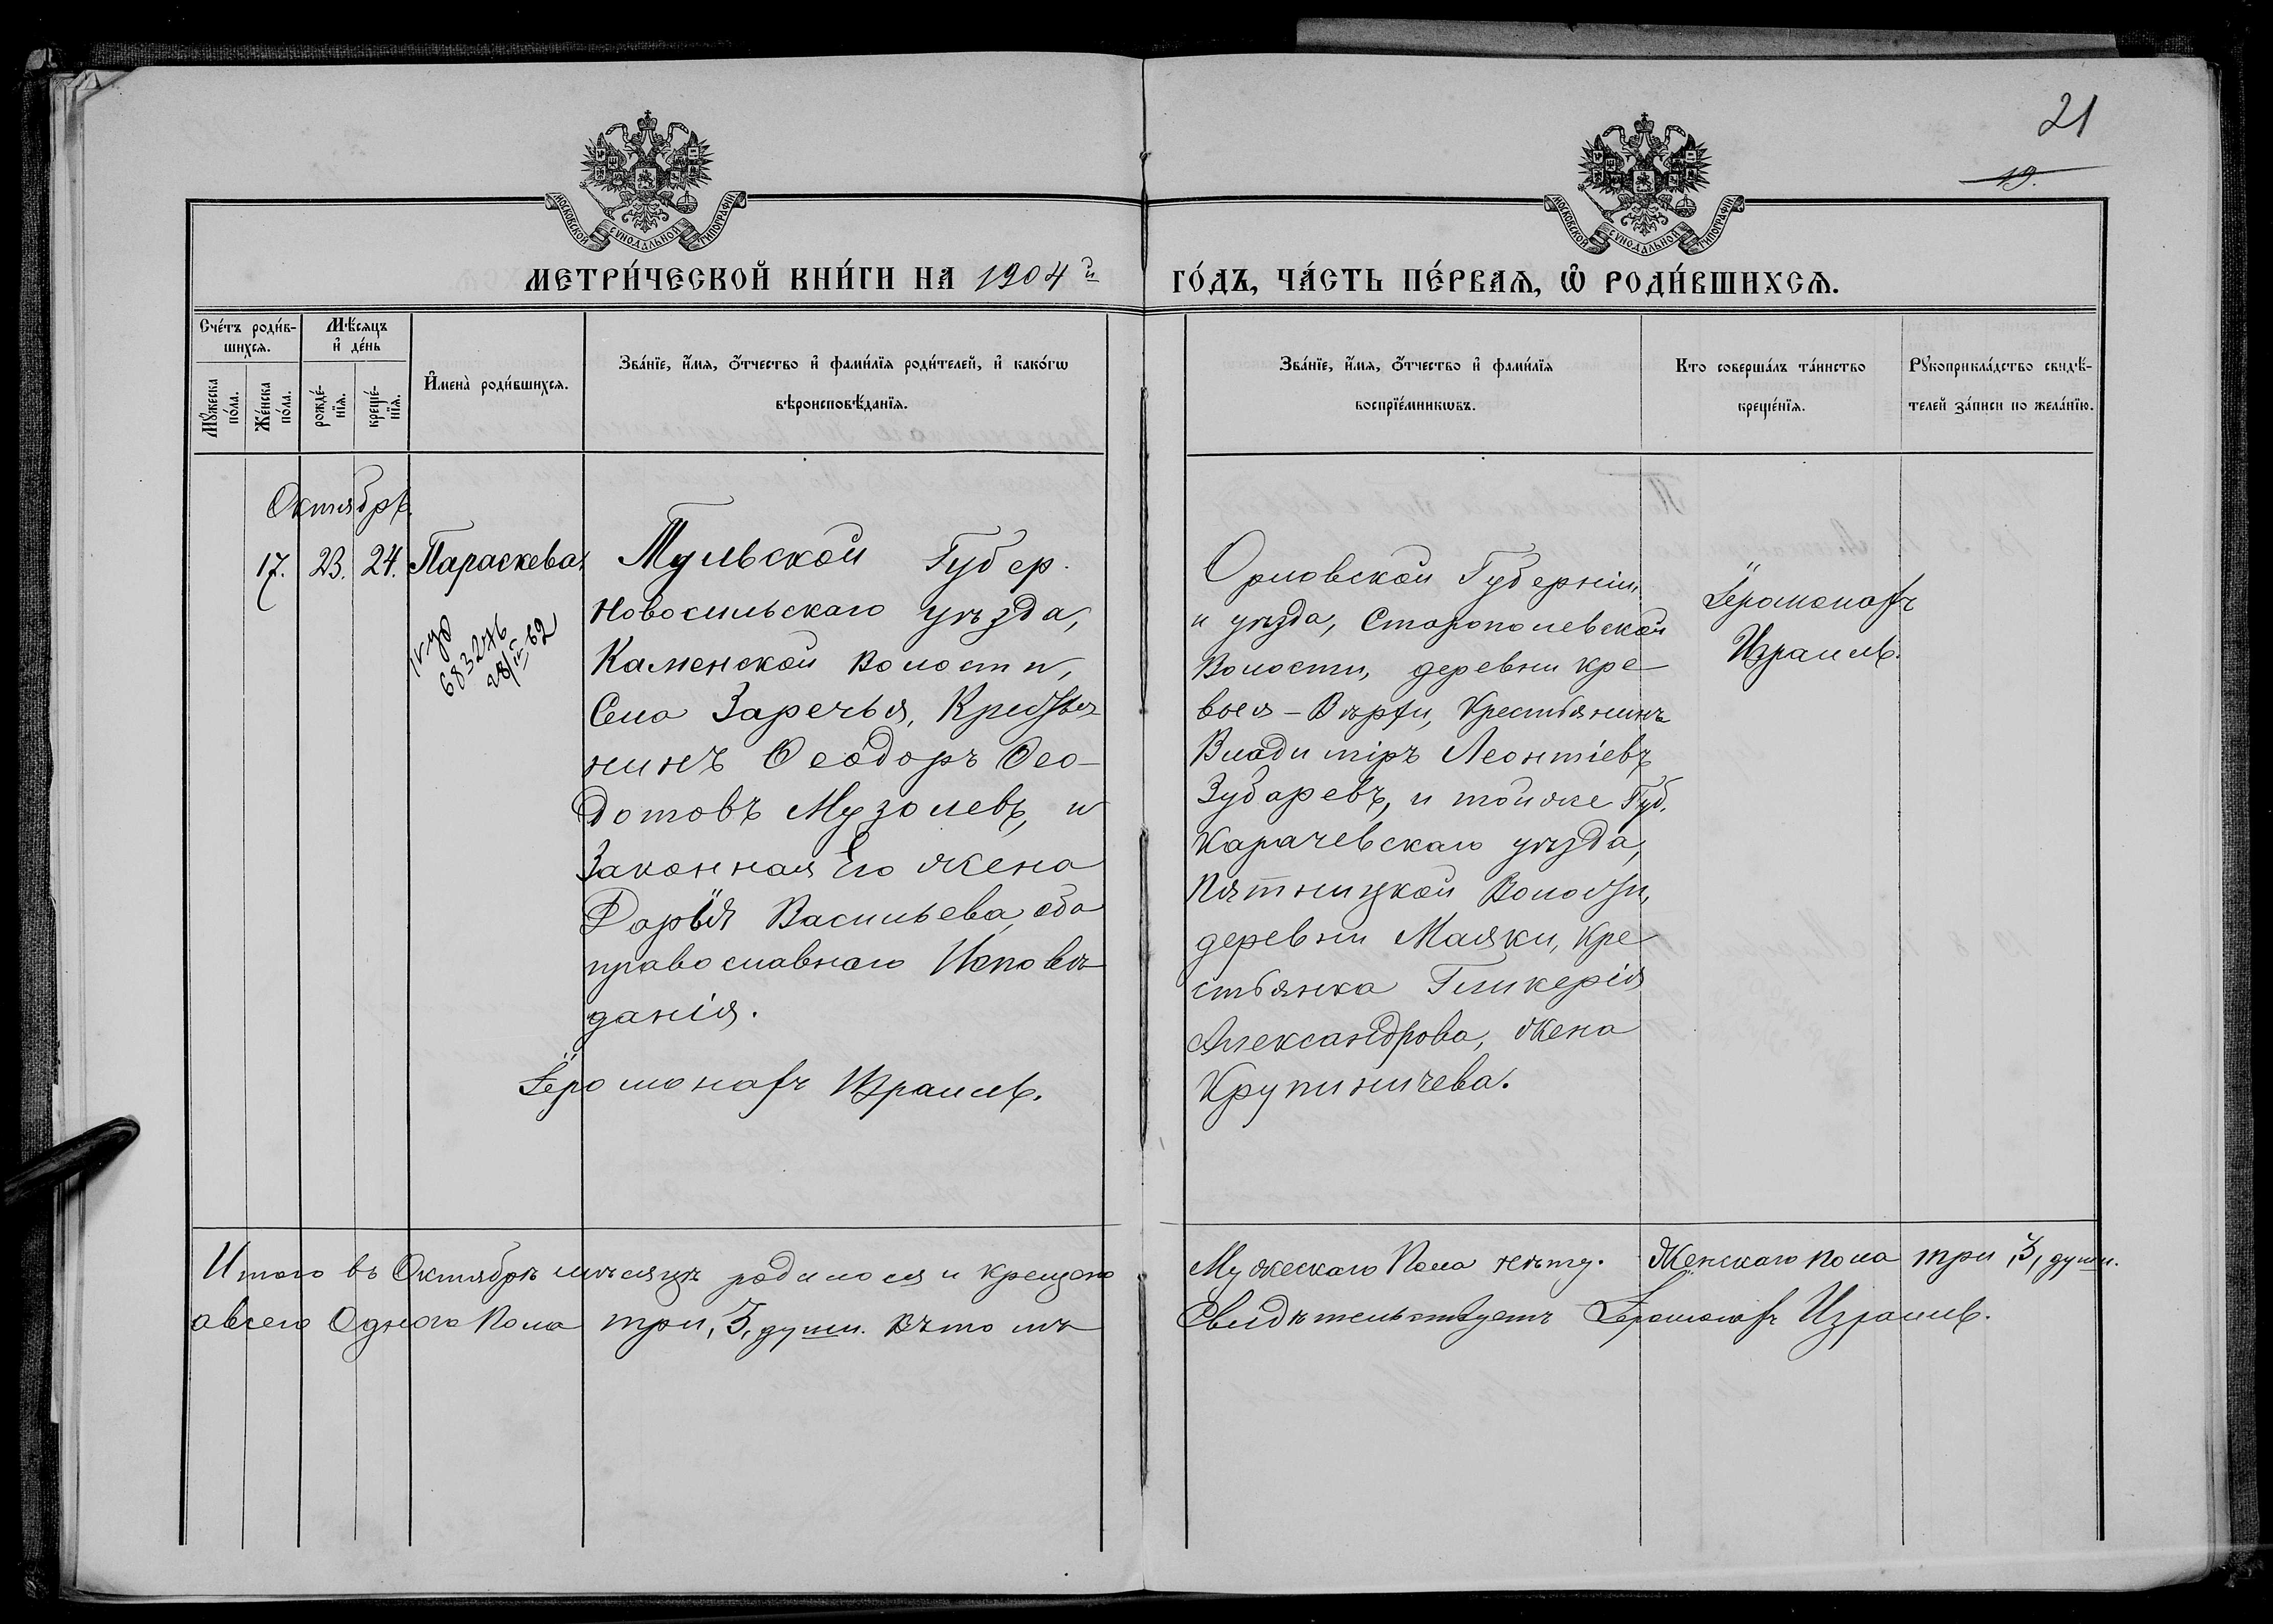 21
19.
МОСКОВСКОЙ СѴНОДАЛЬНОЙ ТИПОГРАФІИ
МОСКОВСКОЙ СѴНОДАЛЬНОЙ ТИПОГРАФІИ
МЕТРИ́ЧЕСКОЙ КНИ́ГИ НА 1904й ГО́ДЪ, ЧА́СТЬ ПЕ́РВАЯ, Ѿ РОДИ́ВШИХСЯ.
Сче́тъ роди́в-
шихся.
Мѣ́сяцъ
и҆ де́нь
Мꙋ́жеска
по́ла.
Же́нска
по́ла.
рожде́-
нїя.
креще́-
нїя.
И҆мена̀ роди́вшихся.
Зва́нїе, и҆́мя, ѻ҆́тчество и҆ фами́лїя роди́телей, и҆ како́гѡ
вѣроисповѣ́данїя.
Зва́нїе, и҆́мя, ѻ҆́тчество и҆ фами́лїя
воспрїе́мникѡвъ.
Кто соверша́лъ та́инство
креще́нїя.
Рꙋкоприкла́дство свидѣ́-
телей за́писи по жела́нїю.
Октябрь.
17. 23. 24. Параскева.
683276
Тульской Губер.
Новосильскаго уѣзда,
Каменской Волости,
Села Заречья, Крестья-
нинъ Ѳеодоръ Ѳео-
дотовъ Музолевъ, и
Законная Его жена
Дарья Васильева, оба
православнаго Исповѣ-
данія.
Іеромонахъ Израиль.
Орловской Губерніи,
и уѣзда, Старопо­левской
Волости, деревни Кре
вые-Верхи, Крестьянинъ
Владиміръ Леонтіевъ
Зубаревъ, и той же Губ.
Карачевскаго уѣзда,
Пятницкой Волости,
деревни Маяки, Кре
стьянка Гликерія
Александрова, жена
Крупиничева.
Іеромонахъ
Израиль.
Итого въ Октябрѣ мѣсяцѣ родилося и крещено
а всего Одного Пола три, 3, души. Въ томъ
Мужескаго Пола нѣту. Женскаго пола три, 3, души.
Свидѣтельствуетъ Іеромонахъ Израиль.